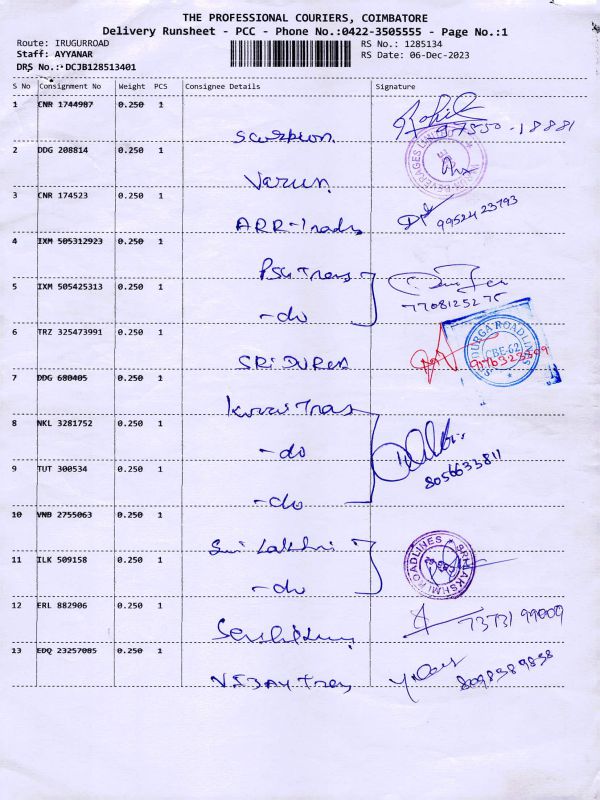 THE PROFESSIONAL COURIERS, COIMBATORE
Delivery Runsheet - PCC - Phone No.:0422-3505555 - Page No.:1
Route: IRUGURROAD
RS No.: 1285134
Staff: AYYANAR
RS Date: 06-Dec-2023
DRS No.: DCJB128513401
S No Consignment No Weight PCS Consignee Details Signature
1 CNR 1744987 0.250 1
Scorpion 97550-18881
2 DDG 208814 0.250 1
Varun
3 CNR 174523 0.250 1
ARR-Trads 9952423793
4 IXM 505312923 0.250 1
PSG Trans
5 IXM 505425313 0.250 1
-do 7708125275
6 TRZ 325473991 0.250 1
DURGA ROADLINES
CBE-62
SRI DURGA
7 DDG 680405 0.250 1
Tras
8 NKL 3281752 0.250 1
-do
9 TUT 300534 0.250 1
8056633811
-do
10 VNB 2755063 0.250 1
Sri Lakshmi
SRI LAKSHMI ROADLINES
11 ILK 509158 0.250 1
-do
12 ERL 882906 0.250 1
73731 99009
13 EDQ 23257085 0.250 1
VIJAY Trans 8098389838